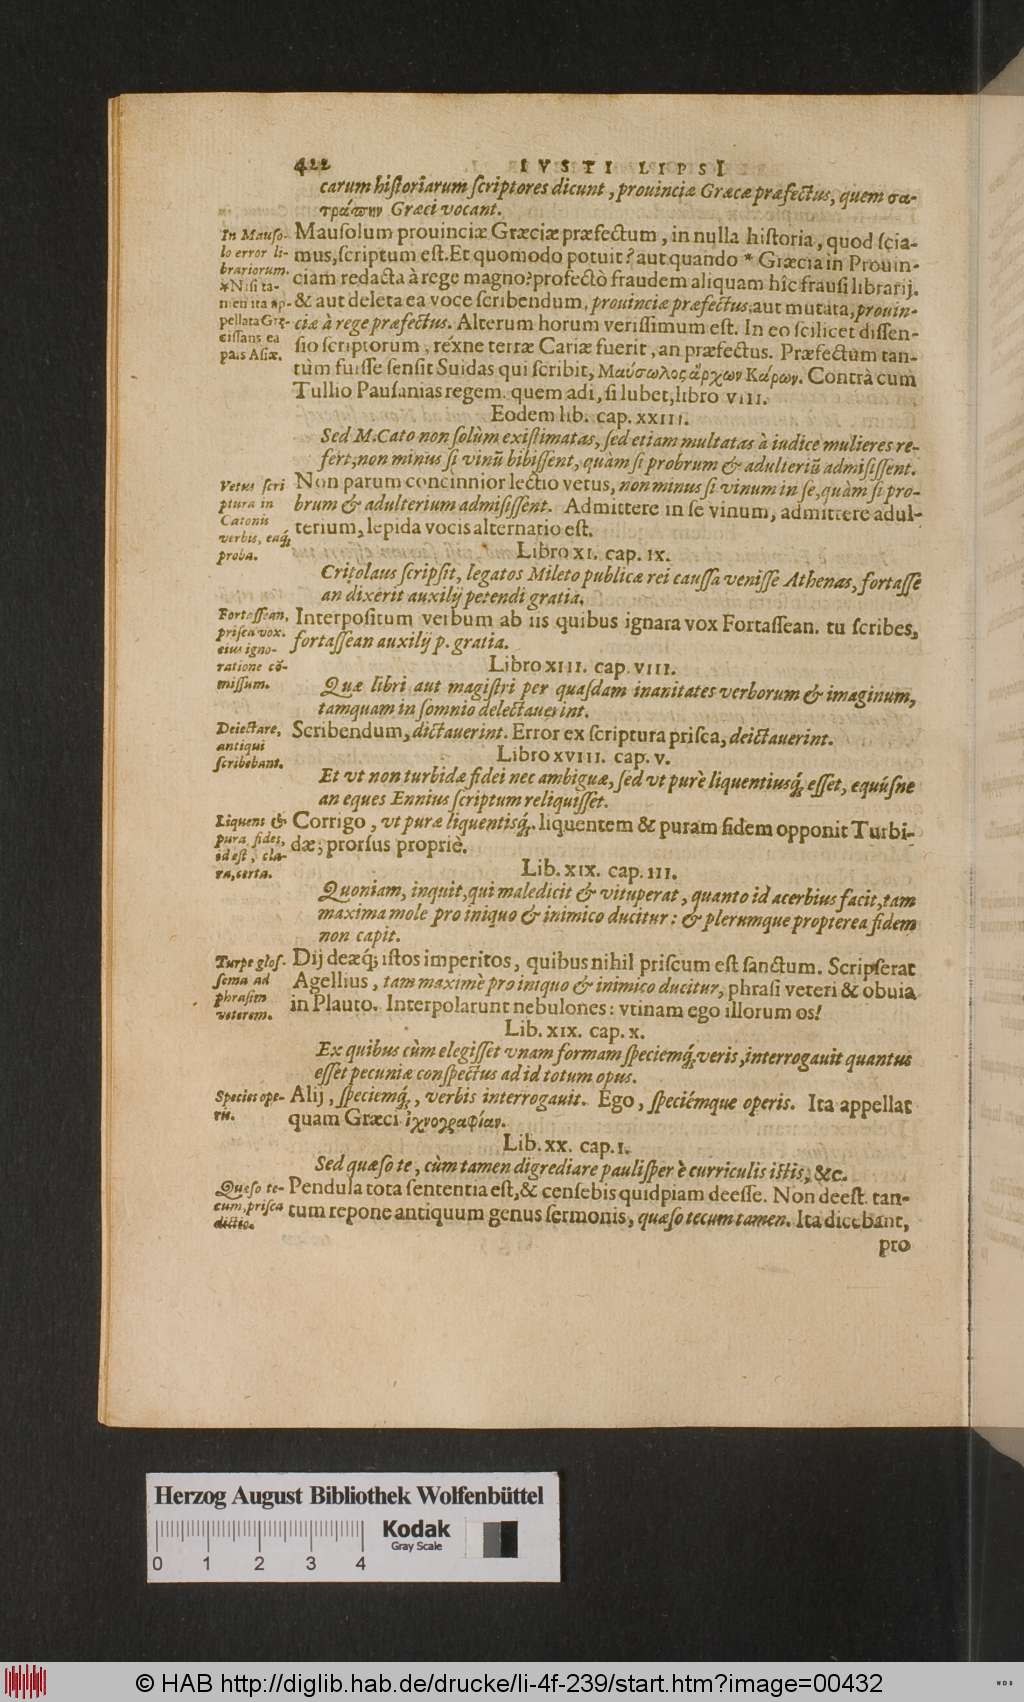 422 IVSTI LIPSI
carum historiarum scriptores dicunt, prouinciæ Græcæ præfectus, quem σα-
τράπην Græci vocant.
Mausolum prouinciæ Græciæ præfectum, in nulla historia, quod scia-
mus, scriptum est. Et quomodo potuit? aut quando * Græcia in Prouin-
ciam redacta à rege magno? profectò fraudem aliquam hîc frausi librarij.
& aut deleta ea voce scribendum, prouinciæ præfectus, aut mutata, prouin-
ciæ à rege præfectus. Alterum horum verissimum est. In eo scilicet dissen-
sio scriptorum, réxne terræ Cariæ fuerit, an præfectus. Præfectum tan-
tùm fuisse sensit Suidas qui scribit, Μαύσωλος ἄρχων Κάρων. Contrà cum
Tullio Pausanias regem. quem adi, si lubet, libro VIII.
In Mauso-
lo error li-
brariorum.
*Nisi ta-
men ita ap-
pellata Græ-
cissans ea
pars Asiæ.
Eodem lib. cap. XXIII.
Sed M. Cato non solùm existimatas, sed etiam multatas à iudice mulieres re-
fert, non minus si vinũ bibissent, quàm si probrum & adulteriũ admisissent.
Non parum concinnior lectio vetus, non minus si vinum in se, quàm si pro-
brum & adulterium admisissent. Admittere in se vinum, admittere adul-
terium, lepida vocis alternatio est.
Vetus scri
ptura in
Catonis
verbis, eaq́;
proba.
Libro XI. cap. IX.
Critolaus scripsit, legatos Mileto publicæ rei caussa venisse Athenas, fortasse
an dixerit auxilij petendi gratia.
Interpositum verbum ab iis quibus ignara vox Fortassean. tu scribes,
fortassean auxilij p. gratia.
Fortassean,
prisca vox.
eius igno-
ratione cō-
missum.
Libro XIII. cap. VIII.
Quæ libri aut magistri per quasdam inanitates verborum & imaginum,
tamquam in somnio delectauerint.
Scribendum, dictauerint. Error ex scriptura prisca, deictauerint.
Deiectare,
antiqui
scribebant.
Libro XVIII. cap. V.
Et vt non turbidæ fidei nec ambiguæ, sed vt purè liquentiusq́; esset, equúsne
an eques Ennius scriptum reliquisset.
Corrigo, vt puræ liquentisq́;. liquentem & puram fidem opponit Turbi-
dæ; prorsus propriè.
Liquens &
pura fides,
id est, cla-
ra, certa.
Lib. XIX. cap. III.
Quoniam, inquit, qui maledicit & vituperat, quanto id acerbius facit, tam
maxima mole pro iniquo & inimico ducitur: & plerumque propterea fidem
non capit.
Dij deæq́; istos imperitos, quibus nihil priscum est sanctum. Scripserat
Agellius, tam maximè pro iniquo & inimico ducitur, phrasi veteri & obuia
in Plauto. Interpolarunt nebulones: vtinam ego illorum os!
Turpe glos-
sema ad
phrasim
veterem.
Lib. XIX. cap. X.
Ex quibus cùm elegisset vnam formam speciemq́; veris, interrogauit quantus
esset pecuniæ conspectus ad id totum opus.
Alij, speciemq́;, verbis interrogauit. Ego, speciémque operis. Ita appellat
quam Græci ἰχνογραφίαν.
Species ope-
ris.
Lib. XX. cap. I.
Sed quæso te, cùm tamen digrediare paulisper è curriculis istis, &c.
Pendula tota sententia est, & censebis quidpiam deesse. Non deest. tan-
tum repone antiquum genus sermonis, quæso tecum tamen. Ita dicebant,
Quæso te-
cum, prisca
dictio.
pro
Herzog August Bibliothek Wolfenbüttel
Kodak
Gray Scale
0 1 2 3 4
© HAB http://diglib.hab.de/drucke/li-4f-239/start.htm?image=00432